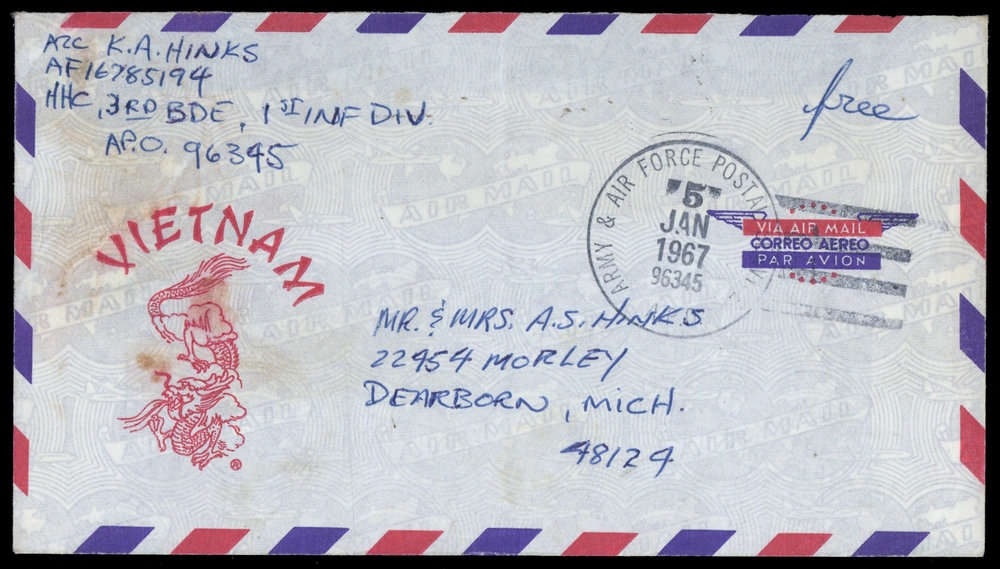 A2C K.A. HINKS
AF16785194
HHC, 3RD BDE, 1ST INF DIV.
A.P.O. 96345
free
ARMY & AIR FORCE POSTAL
5
JAN
1967
96345
VIA AIR MAIL
CORREO AEREO
PAR AVION
VIETNAM
®
MR. & MRS. A.S. HINKS
22454 MORLEY
DEARBORN, MICH.
48124
AIR MAIL